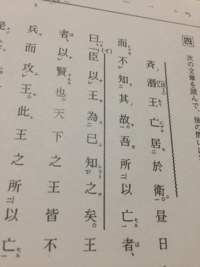 四 次の文章を読んで、後の問い
斉湣王亡居於衛。昼日
而不知其故。吾所以亡者、
曰「臣以王為已知之矣。王
者、以賢也。天下之王皆不
兵而攻王。此王之所以亡
是